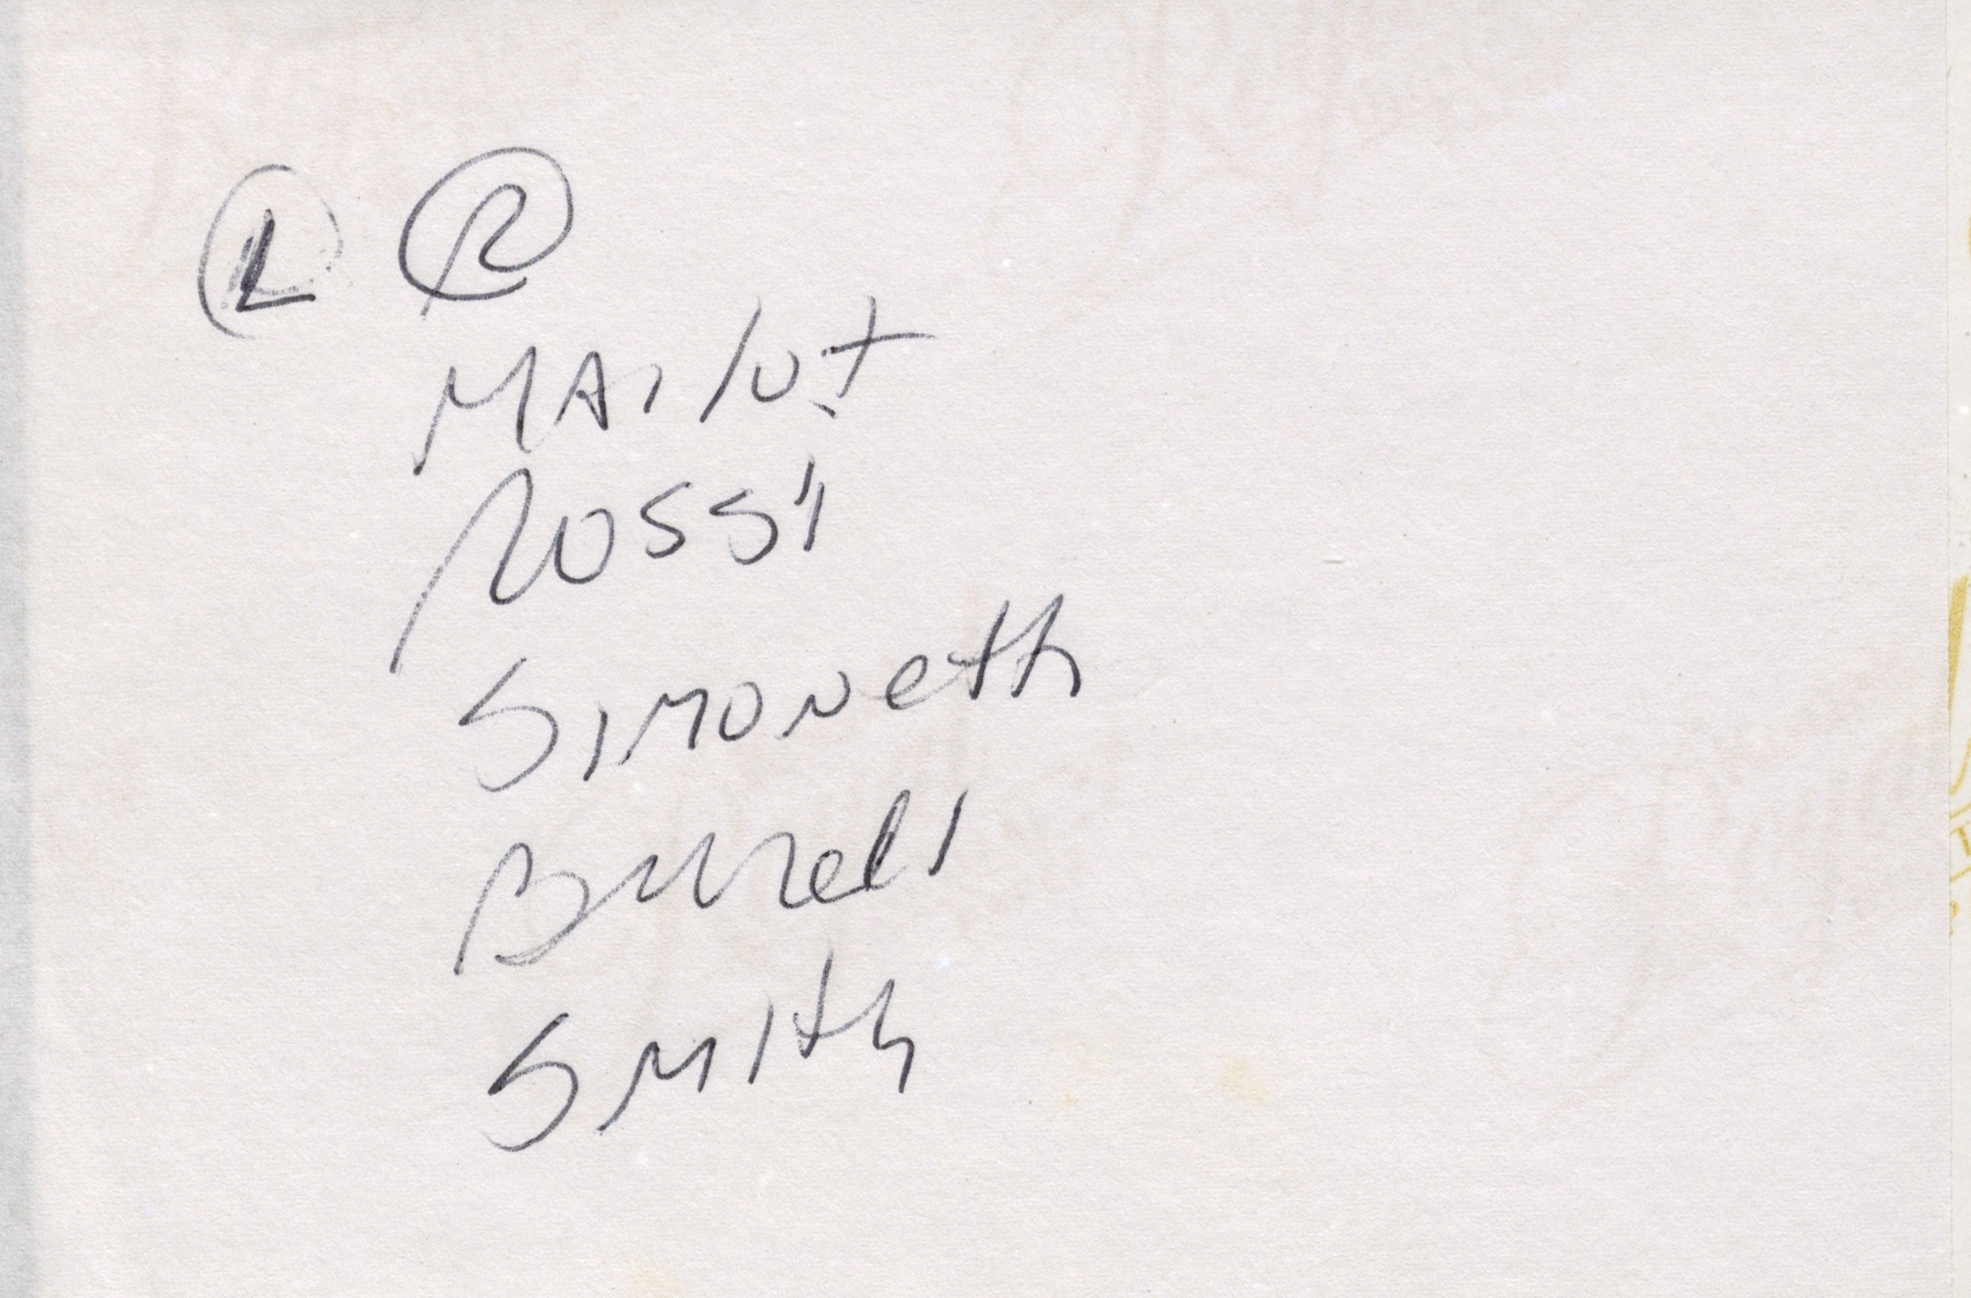 L R
Mailut
Rossi
Simoneth
Burrell
Smith